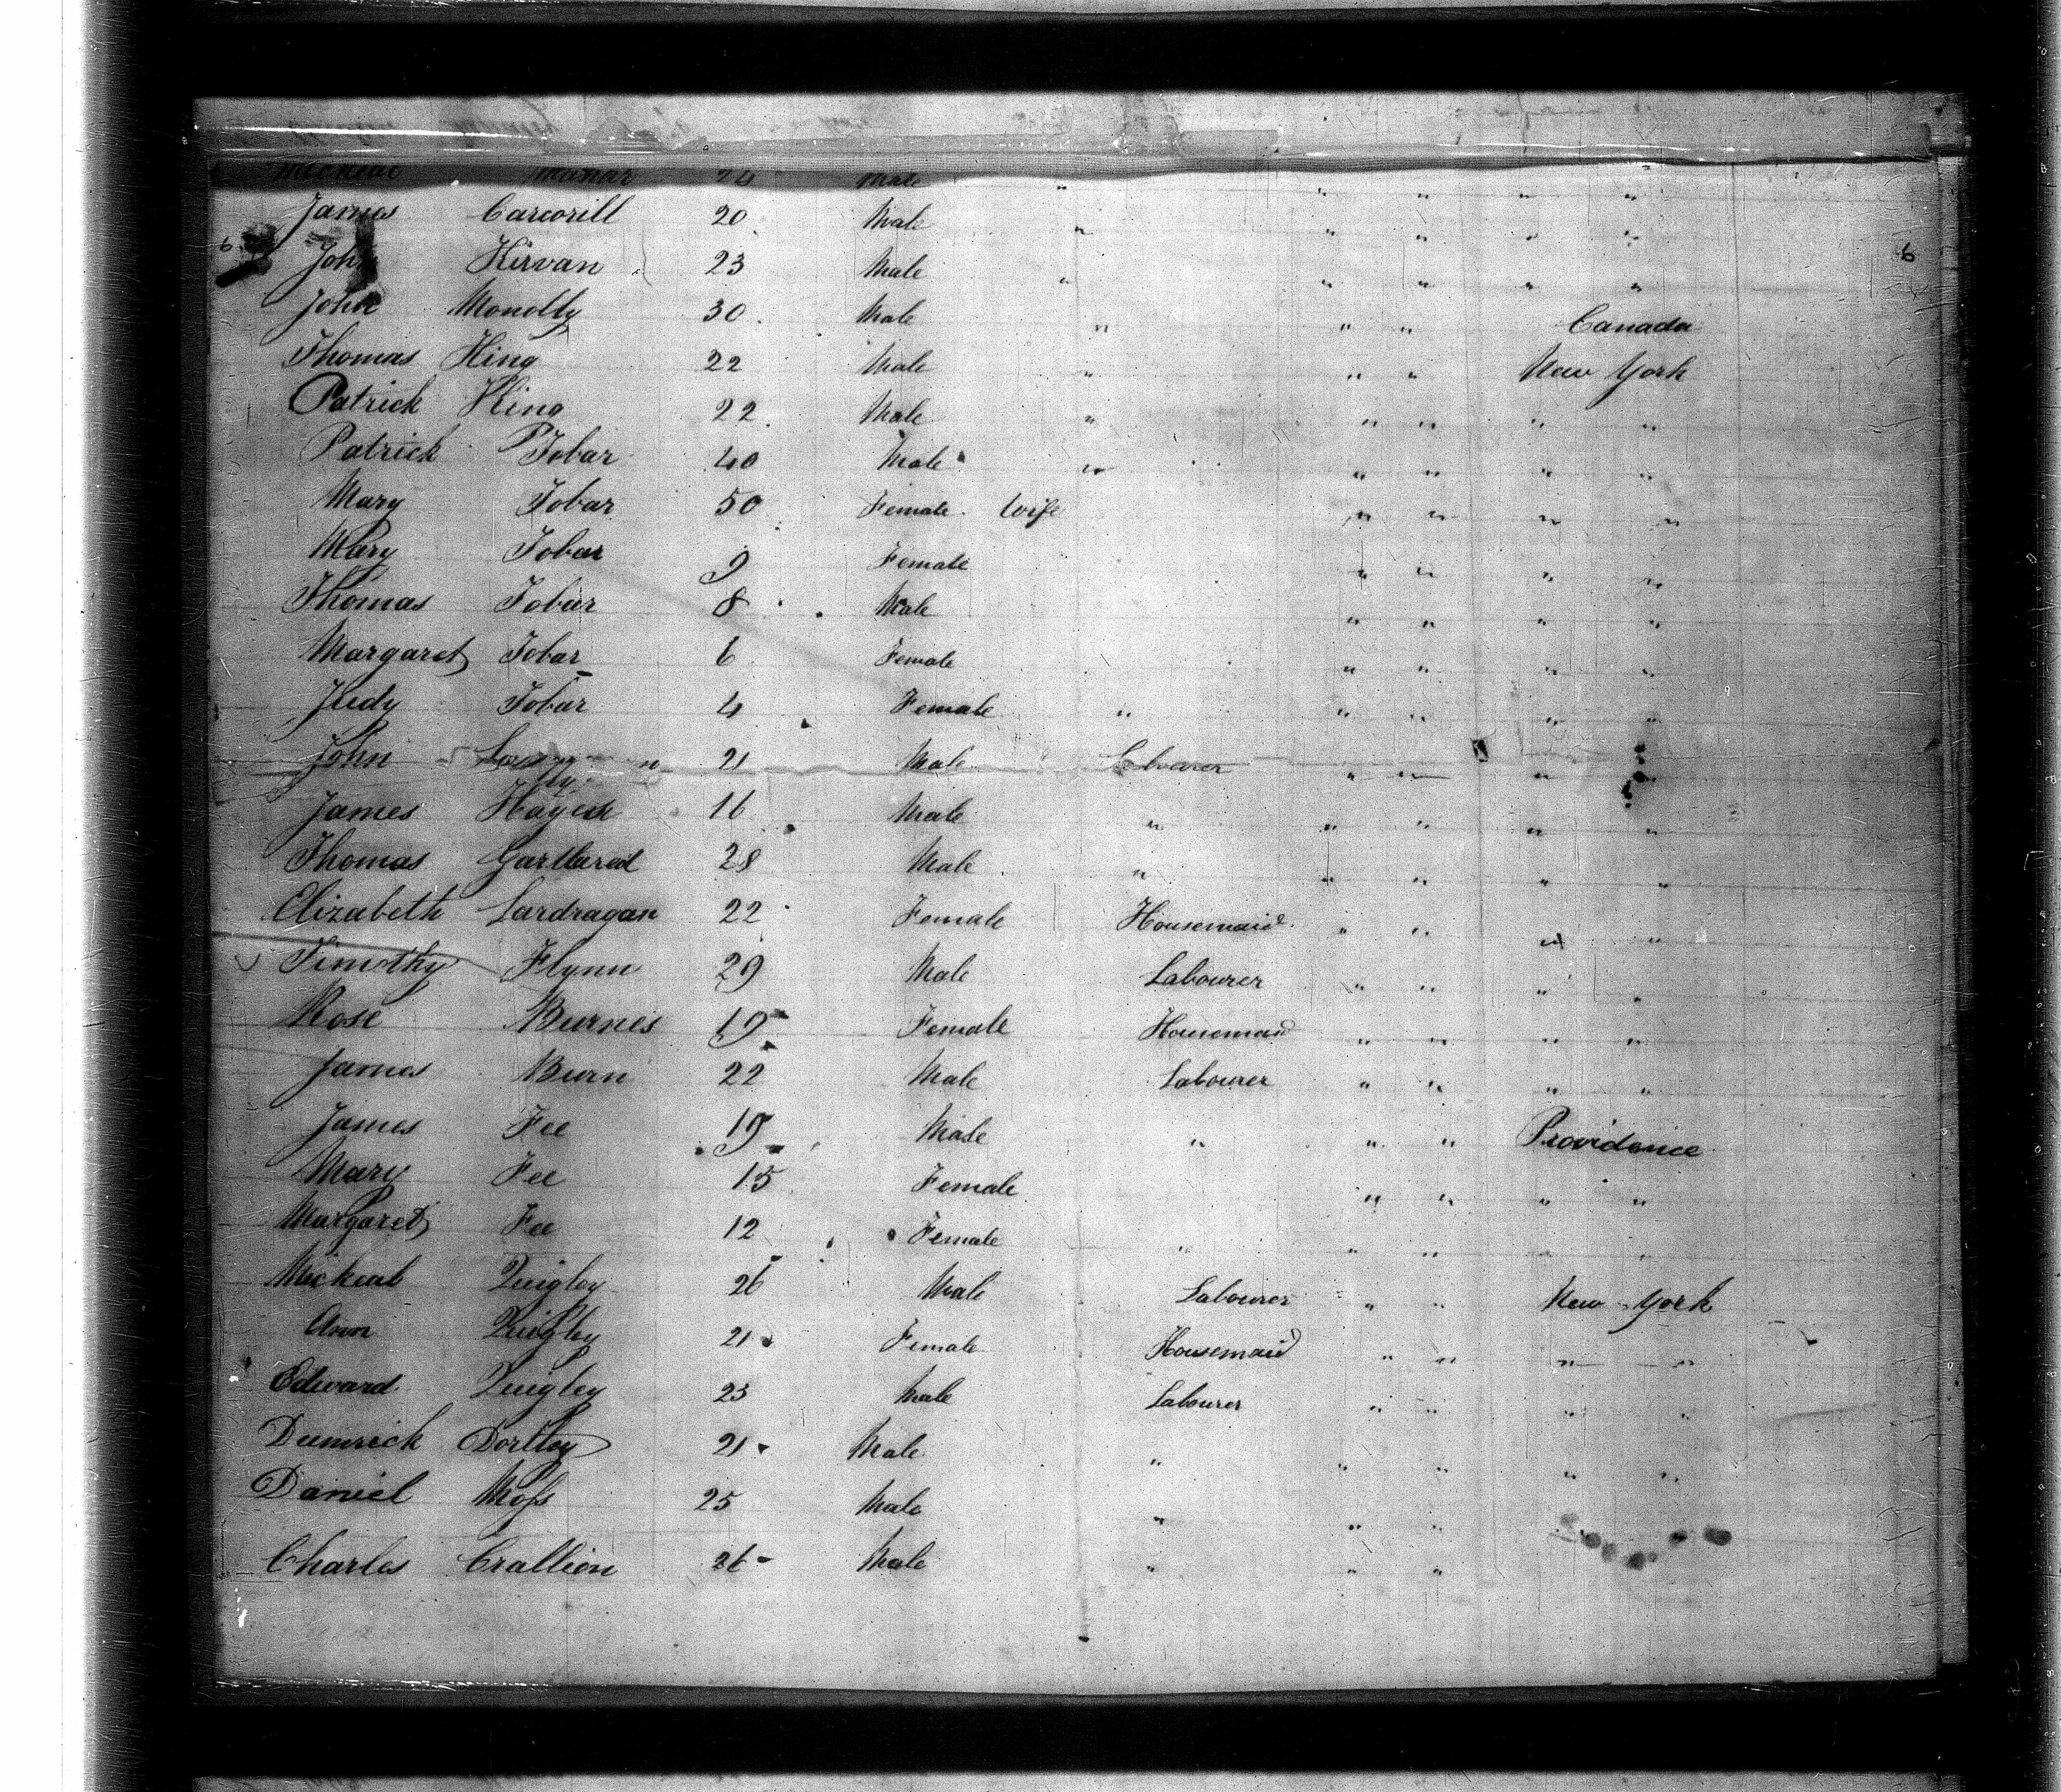 24 Male " " " " "
James Carcorill 20 Male " " " " "
6 John Kirvan 23 Male " " " " " 6
John Monolly 30 Male " " " Canada
Thomas King 22 Male " " " New York
Patrick King 22 Male " " " " "
Patrick Tobar 40 Male " " " " "
Mary Tobar 50 Female Wife " " " "
Mary Tobar 9 Female " " " "
Thomas Tobar 8 Male " " " "
Margaret Tobar 6 Female " " " "
Judy Tobar 4 Female " " " " "
John 21 Male Labourer " " " "
James 16 Male " " " " "
Thomas 28 Male " " " " "
Elizabeth Lardragan 22 Female Housemaid " " " "
Timothy Flynn 29 Male Labourer " " " "
Rose Burnes 19 Female Housemaid " " " "
James Burn 22 Male Labourer " " " "
James Fee 19 Male " " " Providence
Mary Fee 15 Female " " " "
Margaret Fee 12 Female " " " " "
Mickeal Quigley 26 Male Labourer " " New York
Ann Quigley 21 Female Housemaid " " " "
Edward Quigley 23 Male Labourer " " " "
21 Male " " " " "
Daniel Moss 25 Male " " "
Charles Crallion 26 Male " " "